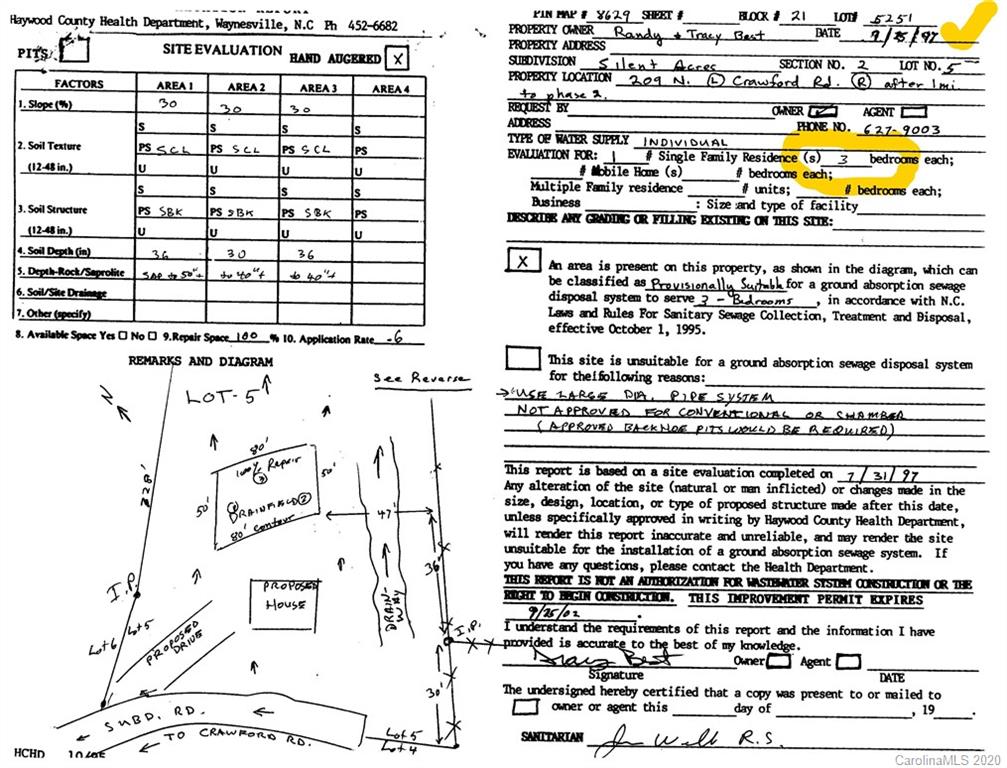 Haywood County Health Department, Waynesville, N.C Ph 452-6682
PITS
SITE EVALUATION
HAND AUGERED X
FACTORS AREA 1 AREA 2 AREA 3 AREA 4
1. Slope (%) 30 30 30
S S S S
2. Soil Texture PS SCL PS SCL PS SCL PS
(12-48 in.) U U U U
S S S S
3. Soil Structure PS SBK PS SBK PS SBK PS
(12-48 in.) U U U U
4. Soil Depth (in) 36 30 36
5. Depth-Rock/Saprolite SAP to 50"+ to 40"+ to 40"+
6. Soil/Site Drainage
7. Other (specify)
8. Available Space Yes No 9.Repair Space 100 % 10. Application Rate .6
REMARKS AND DIAGRAM
See Reverse
N
LOT-5
328'
80'
100% Repair
③
50'
50'
① DRAINFIELD ②
80' contour
47'
36'
I.P.
PROPOSED
HOUSE
DRAIN-
WAY
I.P.
Lot 6 Lot 5
PROPOSED
DRIVE
30'
SUBD. RD.
TO CRAWFORD RD.
Lot 5
Lot 4
HCHD 10/95
PIN MAP # 8629 SHEET # BLOCK # 21 LOT# 5251
PROPERTY OWNER Randy + Tracy Best DATE 9/25/97
PROPERTY ADDRESS
SUBDIVISION Silent Acres SECTION NO. 2 LOT NO. 5
PROPERTY LOCATION 209 N. (L) Crawford Rd. (R) after 1 mi
to phase 2.
REQUEST BY OWNER AGENT
ADDRESS PHONE NO. 627-9003
TYPE OF WATER SUPPLY INDIVIDUAL
EVALUATION FOR: 1 # Single Family Residence (s) 3 bedrooms each;
# Mobile Home (s) # bedrooms each;
Multiple Family residence # units; # bedrooms each;
Business : Size and type of facility
DESCRIBE ANY GRADING OR FILLING EXISTING ON THIS SITE:
X An area is present on this property, as shown in the diagram, which can
be classified as Provisionally Suitable for a ground absorption sewage
disposal system to serve 3 - Bedrooms , in accordance with N.C.
Laws and Rules For Sanitary Sewage Collection, Treatment and Disposal,
effective October 1, 1995.
This site is unsuitable for a ground absorption sewage disposal system
for the following reasons:
USE LARGE DIA. PIPE SYSTEM
NOT APPROVED FOR CONVENTIONAL OR CHAMBER
(APPROVED BACKHOE PITS WOULD BE REQUIRED)
This report is based on a site evaluation completed on 7/31/97
Any alteration of the site (natural or man inflicted) or changes made in the
size, design, location, or type of proposed structure made after this date,
unless specifically approved in writing by Haywood County Health Department,
will render this report inaccurate and unreliable, and may render the site
unsuitable for the installation of a ground absorption sewage system. If
you have any questions, please contact the Health Department.
THIS REPORT IS NOT AN AUTHORIZATION FOR WASTEWATER SYSTEM CONSTRUCTION OR THE
RIGHT TO BEGIN CONSTRUCTION. THIS IMPROVEMENT PERMIT EXPIRES
9/25/02 .
I understand the requirements of this report and the information I have
provided is accurate to the best of my knowledge.
Tracy Best Owner Agent
Signature DATE
The undersigned hereby certified that a copy was present to or mailed to
owner or agent this day of , 19 .
SANITARIAN R.S.
CarolinaMLS 2020